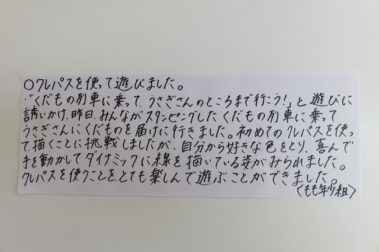 ○クレパスを使って遊びました。
"くだもの列車に乗って、うさぎさんのところまで行こう!"と遊びに
誘いかけ、昨日、みんながスタンピングしたくだもの列車に乗って
うさぎさんにくだものを届けに行きました。初めてのクレパスを使っ
て描くことに挑戦しましたが、自分から好きな色をとり、喜んで
手を動かしてダイナミックに線を描いている姿がみられました。
クレパスを使うことを、とても楽しんで遊ぶことができました。
〈もも組〉